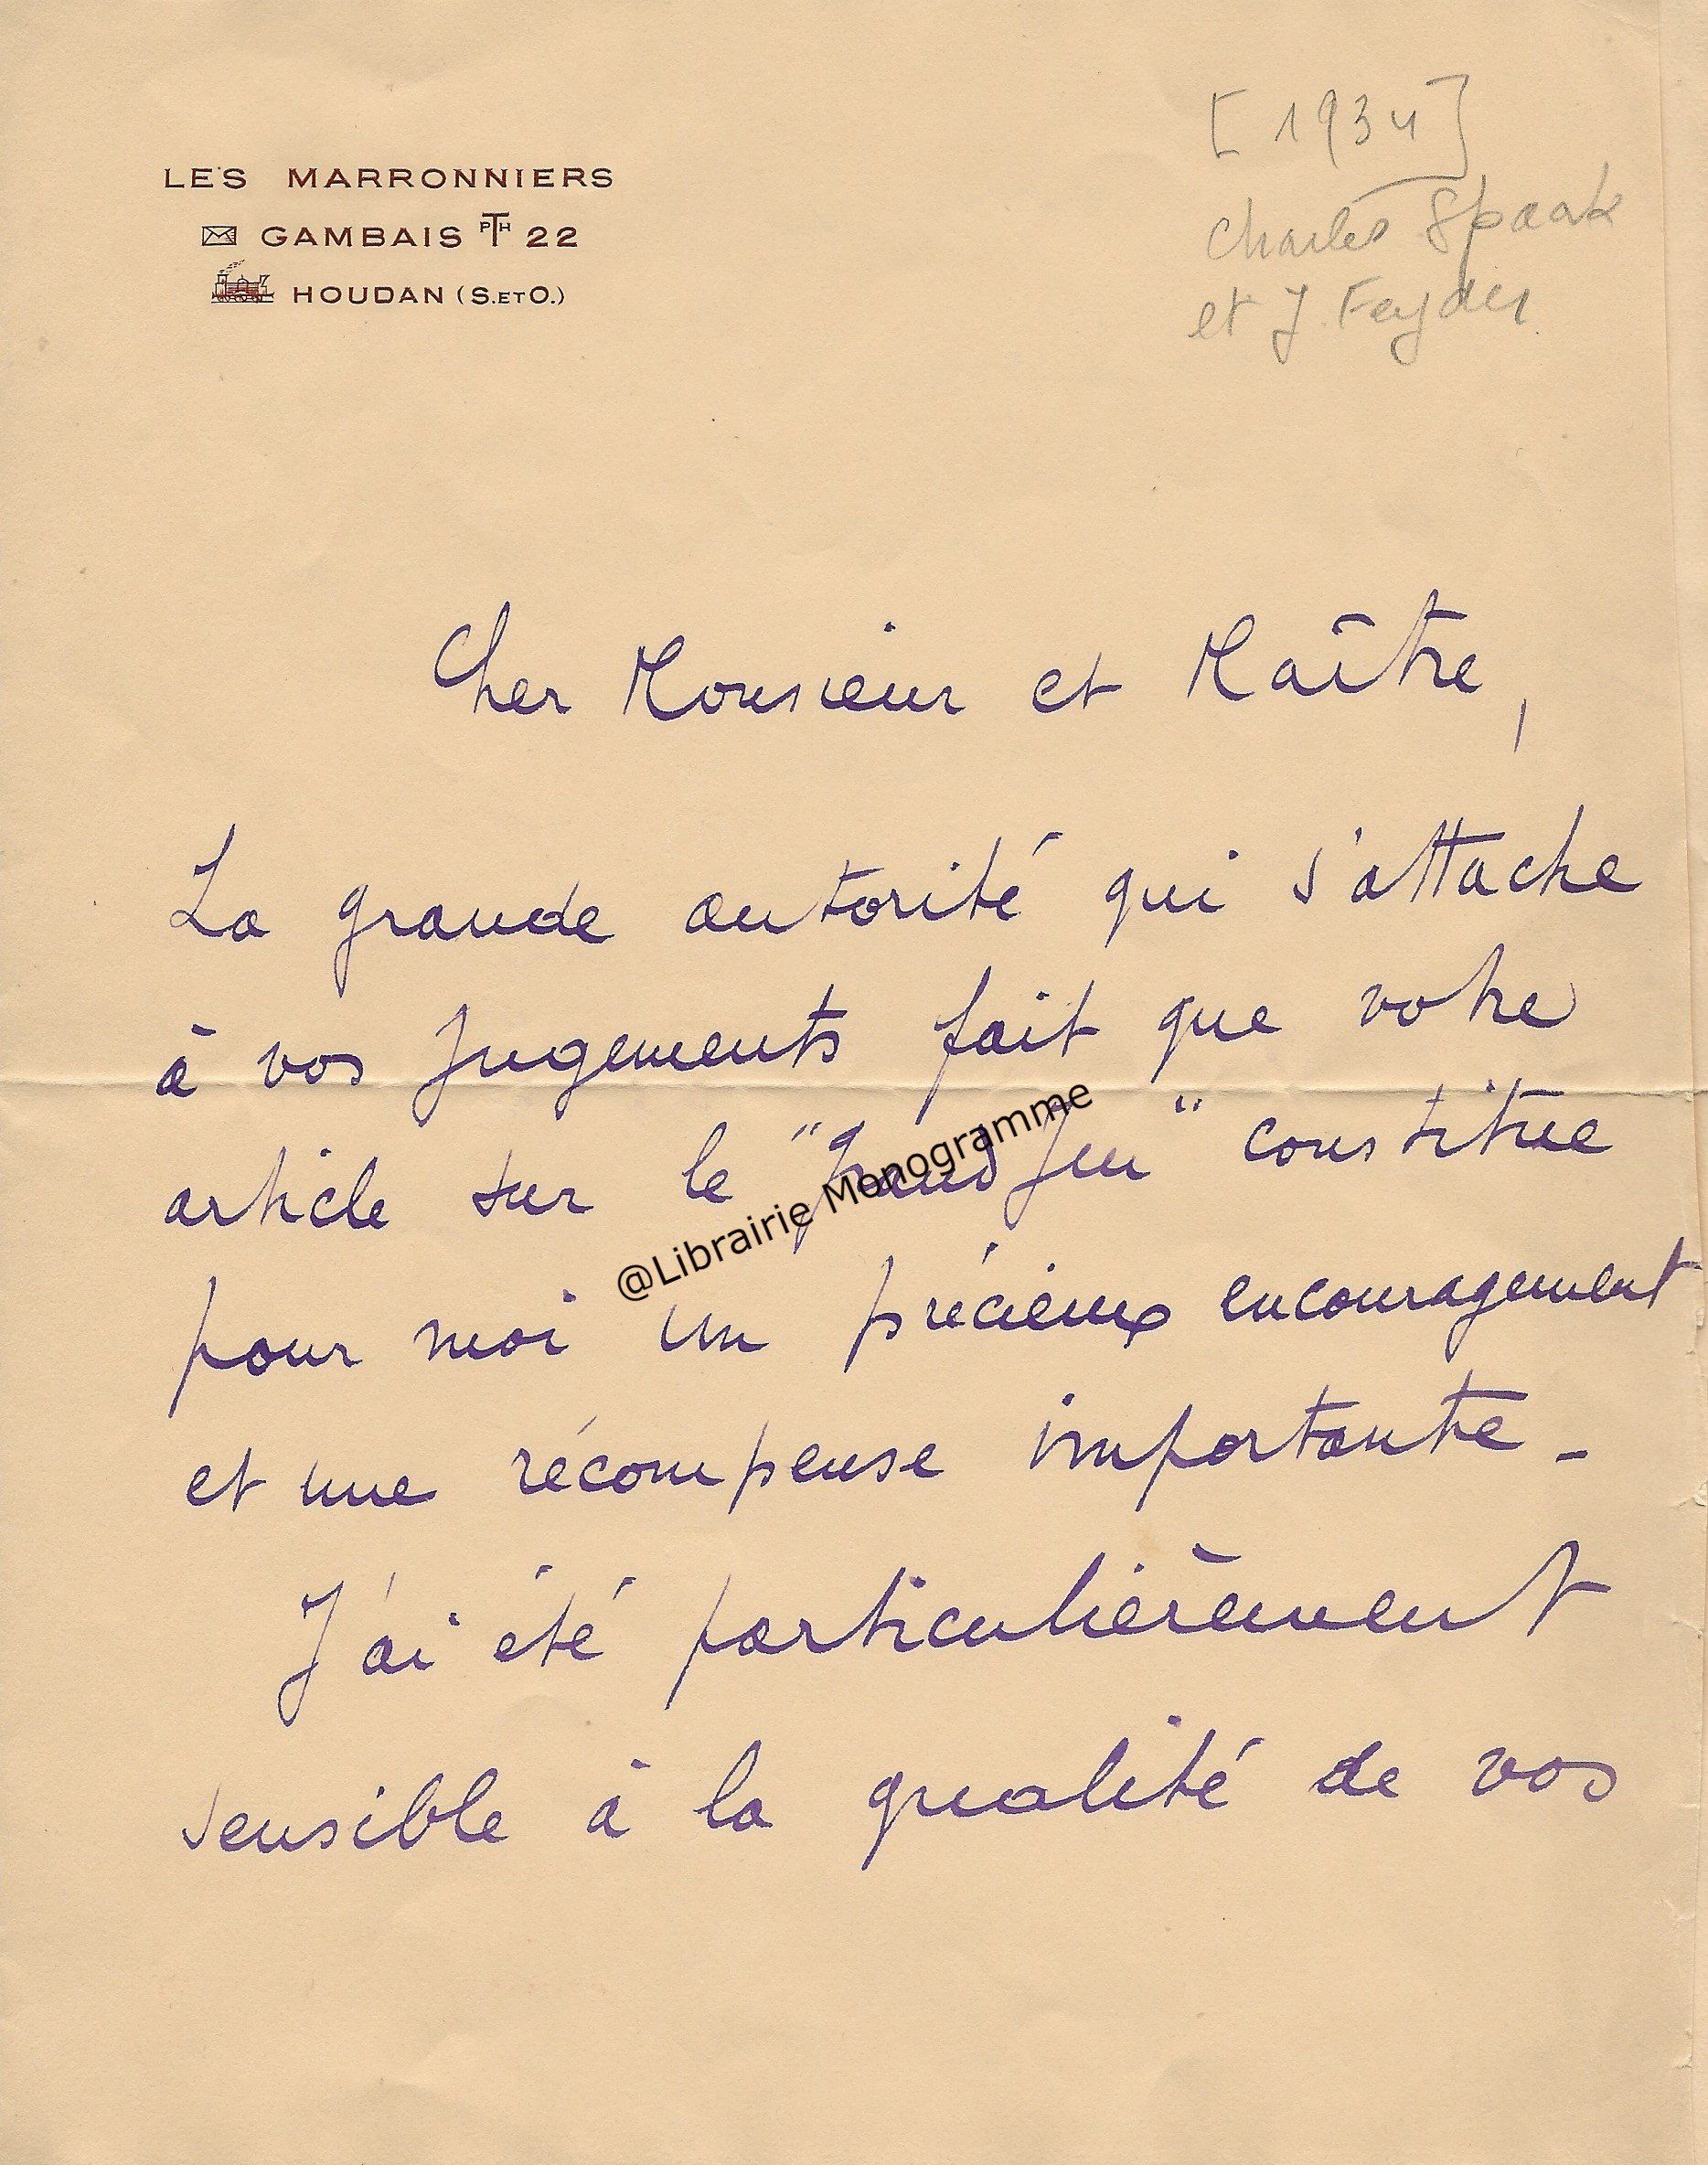 LES MARRONNIERS
GAMBAIS PTH 22
HOUDAN (S.ETO.)
[1934]
Charles Spaak
et J. Feyder.
Cher Monsieur et Maître,
La grande autorité qui s'attache
à vos jugements fait que votre
article sur le "Grand Jeu" constitue
@Librairie Monogramme
pour moi un précieux encouragement
et une récompense importante -
J'ai été particulièrement
sensible à la qualité de vos